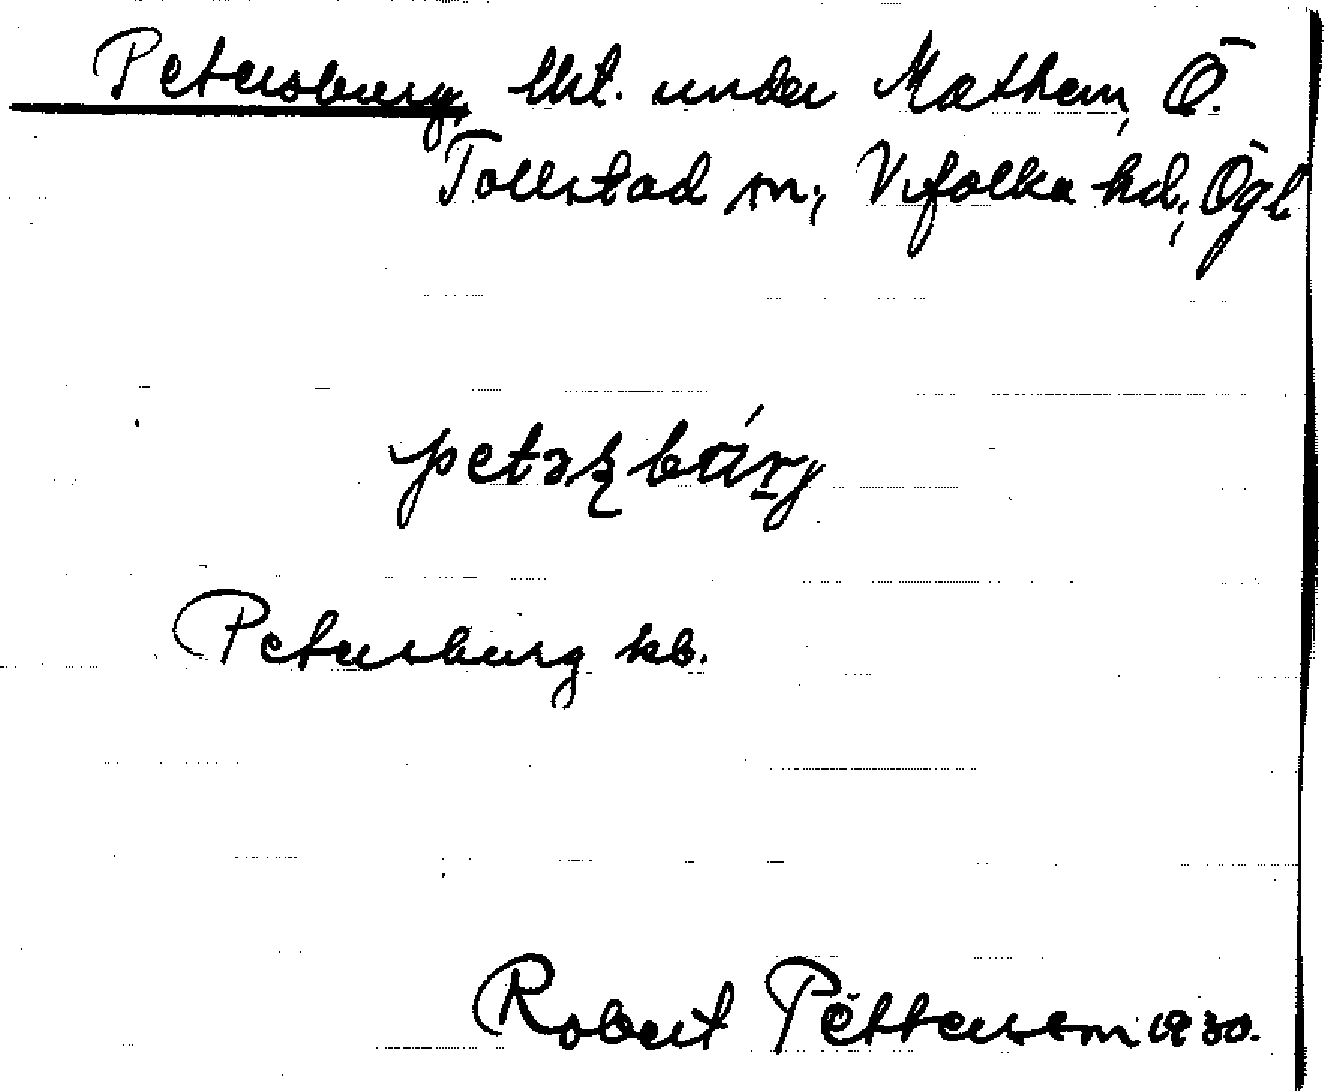 Petersburg, lht. under Mathem, Ö.
Tollstad sn; Vifolka hd; Ögl
petərsbúrj
Petersburg kb.
Robert Pettersson 1930.